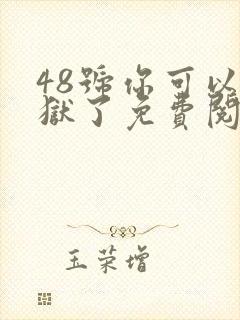 48號你可以
獄了免費閱
玉荣增